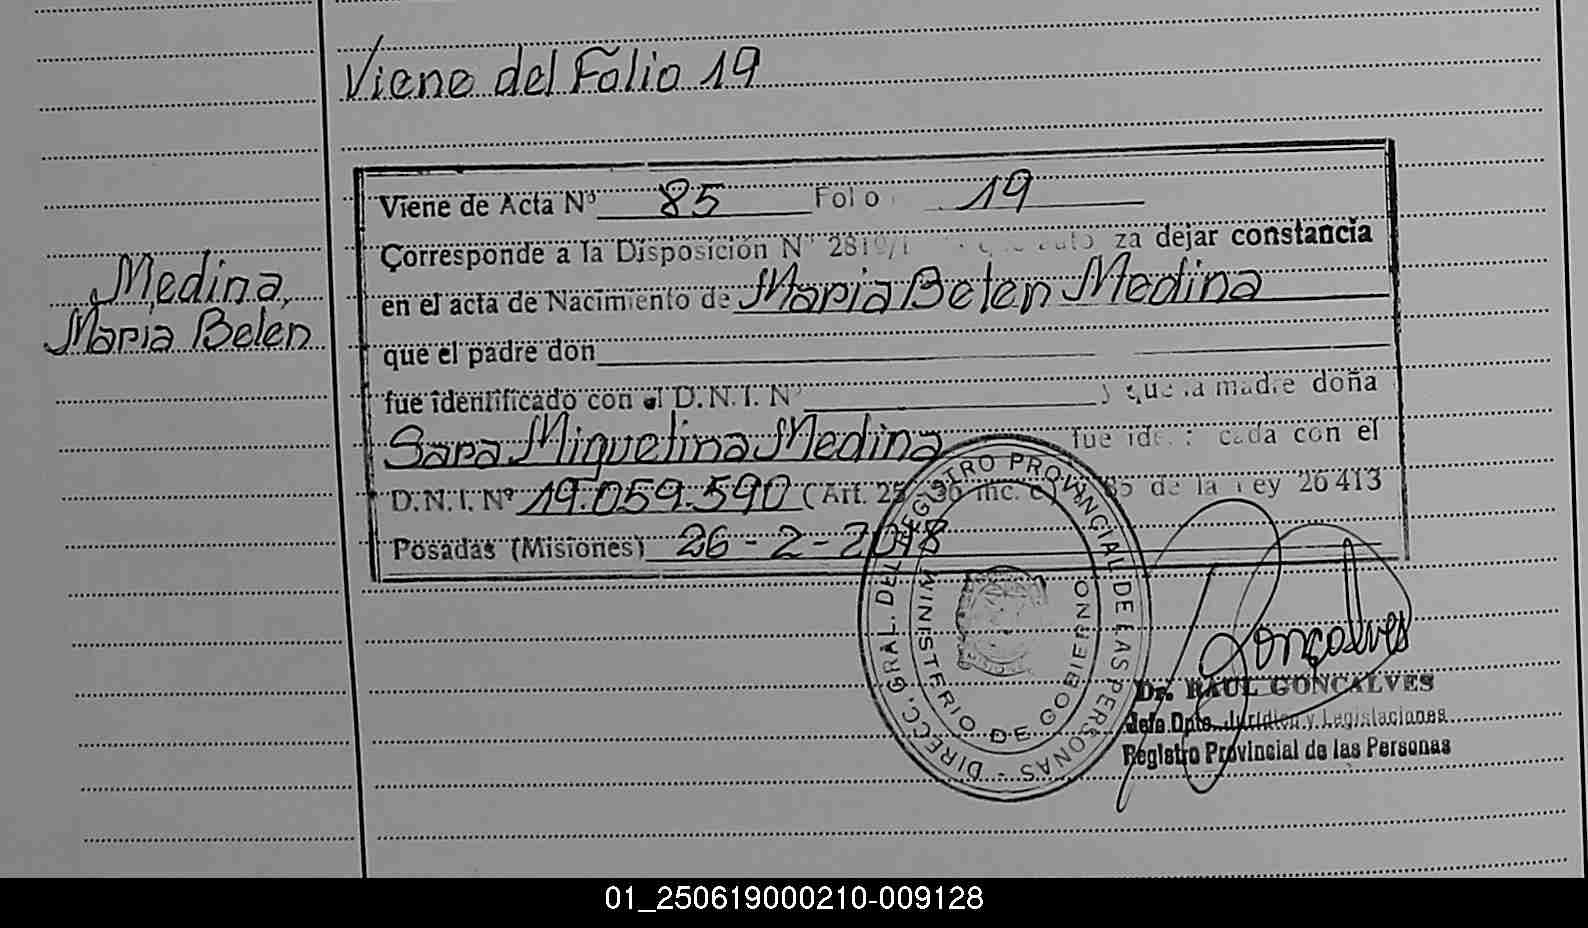 Viene del Folio 19
Viene de Acta Nº 85 Folio 19
Corresponde a la Disposición Nº 2819/1 za dejar constancia
en el acta de Nacimiento de Maria Belen Medina
Medina,
Maria Belen
que el padre don
fue identificado con el D.N.I. Nº y que la madre doña
Sara Miguelina Medina fue cada con el
D.N.I. Nº 19.059.590 (Art. 25 36 inc. c) y 85 de la Ley 26413
Posadas (Misiones) 26-2-2018
DIRECC. GRAL. DEL REGISTRO PROVINCIAL DE LAS PERSONAS -
MINISTERIO DE GOBIERNO
Gonçalves
Dr. RAUL GONCALVES
Jefe Dpto. Jurídico y Legislaciones
Registro Provincial de las Personas
01_250619000210-009128